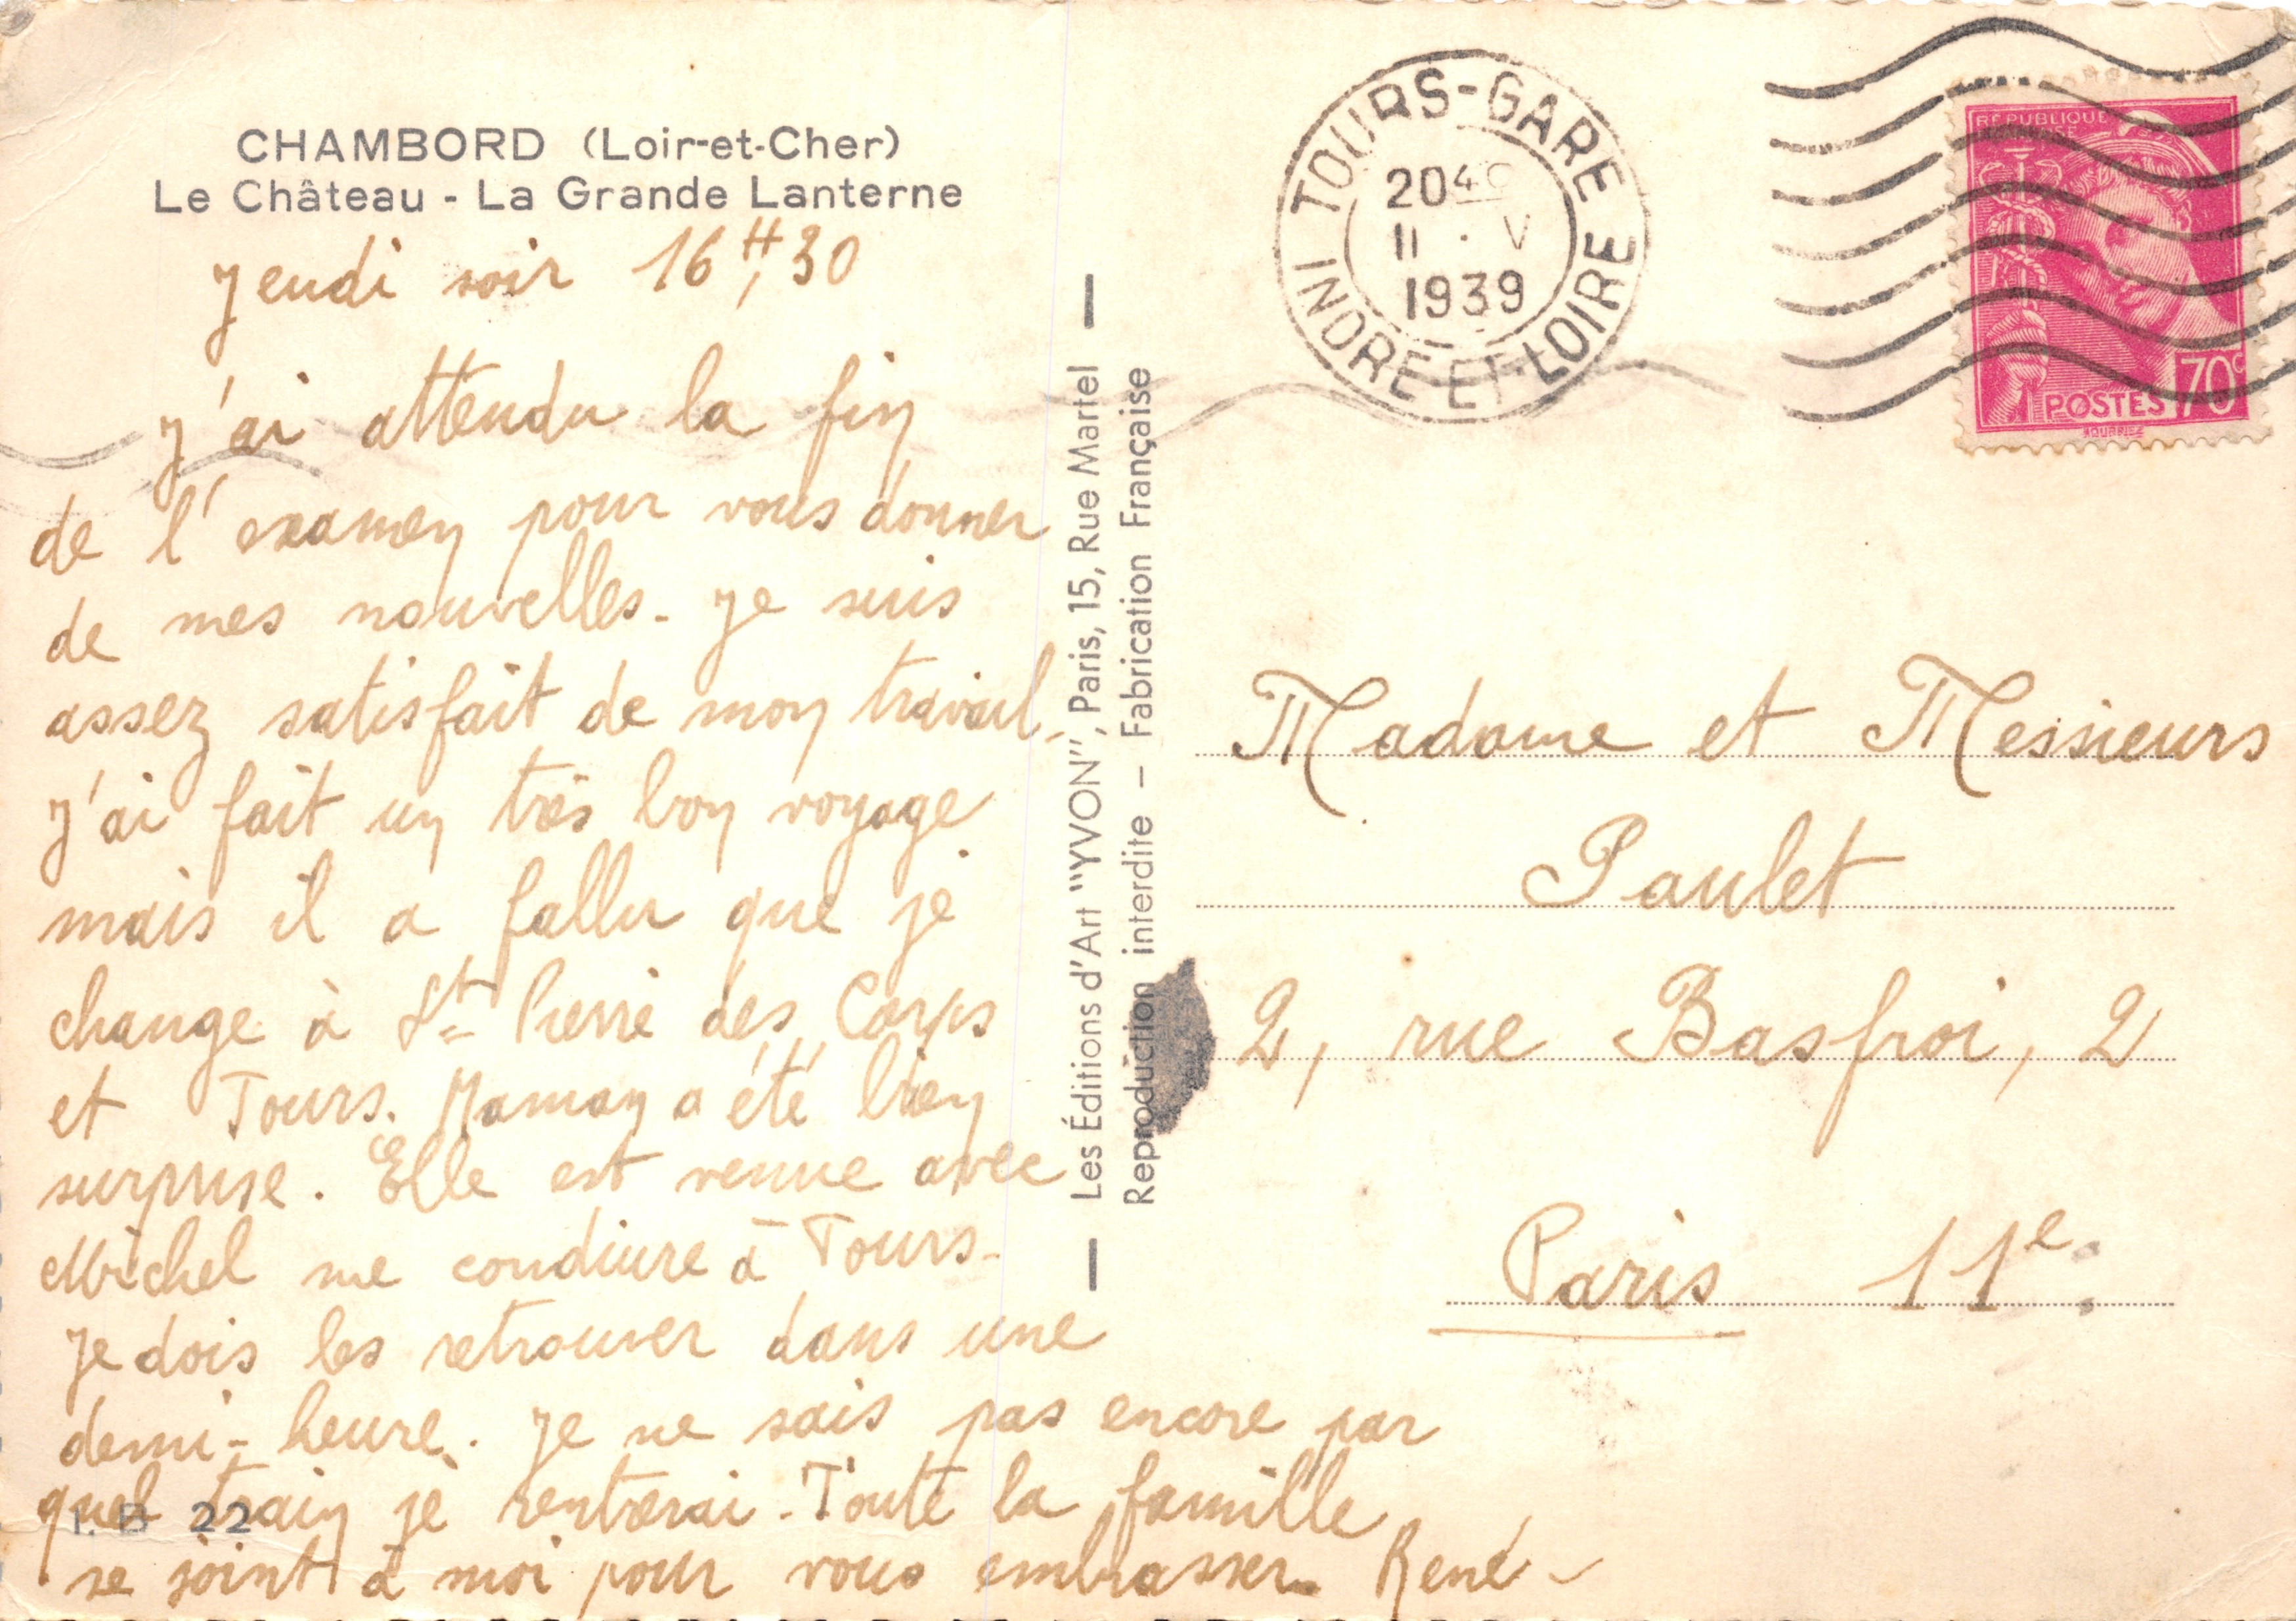 CHAMBORD (Loir-et-Cher)
Le Château - La Grande Lanterne
Jeudi soir 16H,30
J'ai attendu la fin
de l'examen pour vous donner
de mes nouvelles. Je suis
assez satisfait de mon travail.
J'ai fait un très bon voyage
mais il a fallu que je
change à St Pierre des Corps
et Tours. Maman a été bien
surprise. Elle est venue avec
Michel me conduire à Tours.
Je dois les retrouver dans une
demi-heure. Je ne sais pas encore par
quel train je rentrerai. Toute la famille
se joint à moi pour vous embrasser. René
I. B 22
Les Éditions d'Art "YVON", Paris, 15, Rue Martel
Reproduction interdite — Fabrication Française
TOURS-GARE
20 4
11 · V
1939
INDRE-ET-LOIRE
REPUBLIQUE
POSTES 70c
Madame et Messieurs
Paulet
2, rue Basfroi, 2
Paris 11e.